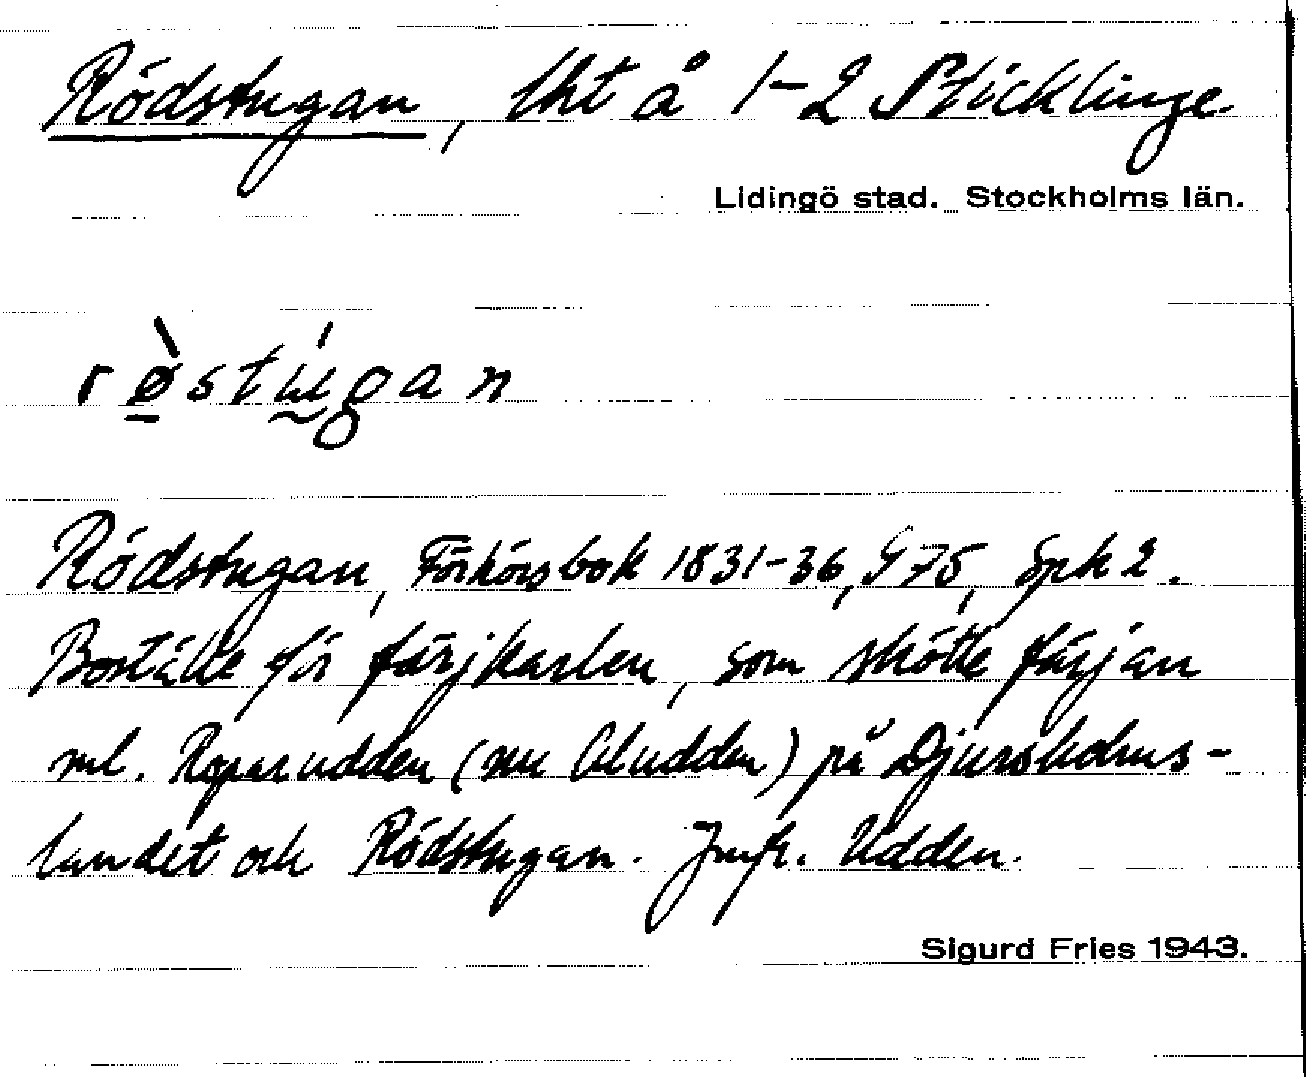 Rödstugan, lht å 1-2 Sticklinge
Lidingö stad. Stockholms län.
rø̀stúgan
Rödstugan, Förhörsbok 1831-36, S 75, Spk 2.
Boställe för färjkarlen, som skötte färjan
ml. Roparudden (nu Aludden) på Djursholms-
landet och Rödstugan. Jmfr. Udden.
Sigurd Fries 1943.